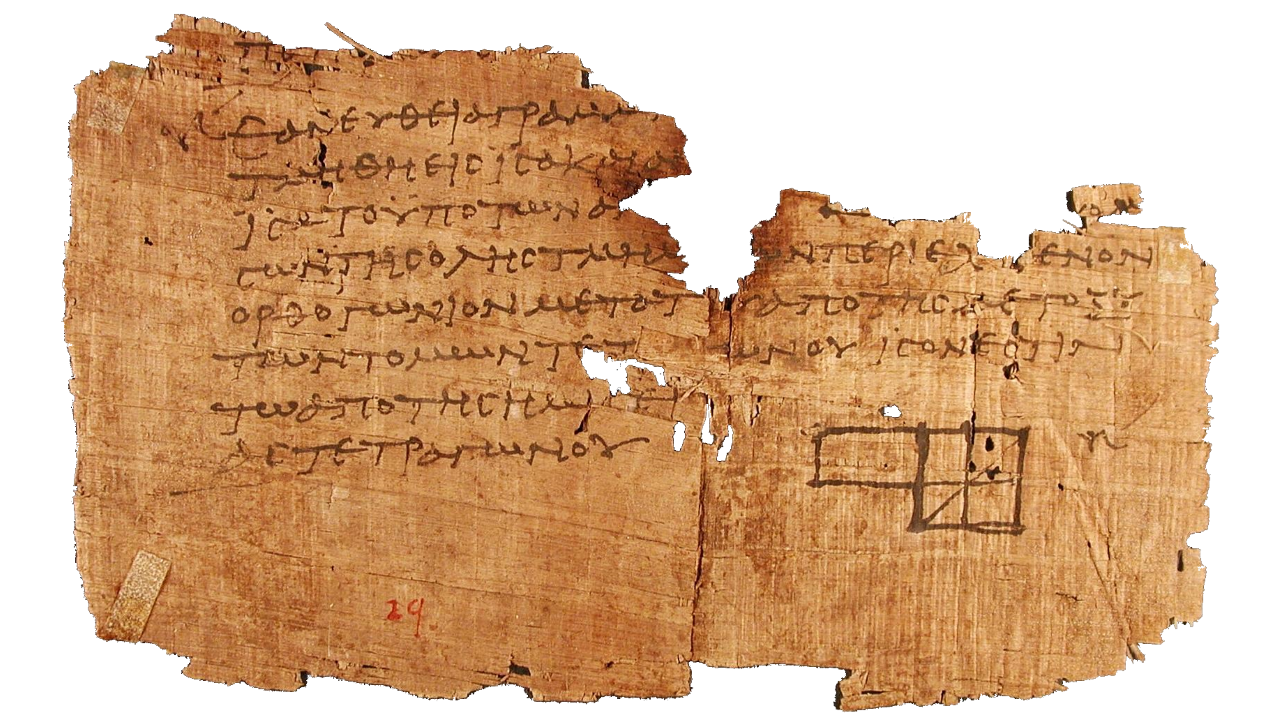 ΕΑΝ ΕΥΘΕΙΑ ΓΡΑΜΜ
ΤΜΗΘΗ ΕΙϹ ΙϹΑ ΚΑΙ
ΙϹΑ ΤΟ ΥΠΟ ΤΩΝ Α
ϹΩΝ ΤΗϹ ΟΛΗϹ ΤΜΗΜ ΩΝ ΠΕΡΙΕΧ ΜΕΝΟΝ
ΟΡΘΟΓΩΝΙΟΝ ΜΕΤΑ ΤΟΥ ΑΠΟ ΤΗϹ ΜΕΤΟΞΥ
ΤΩΝ ΤΟΜΩΝ ΤΕΤ ΩΝΟΥ ΙϹΟΝ ΕϹΤΙΝ
ΤΩ ΑΠΟ ΤΗϹ ΗΜΙϹΕΙ
ΑϹ ΤΕΤΡΑΓΩΝΟΥ
29.